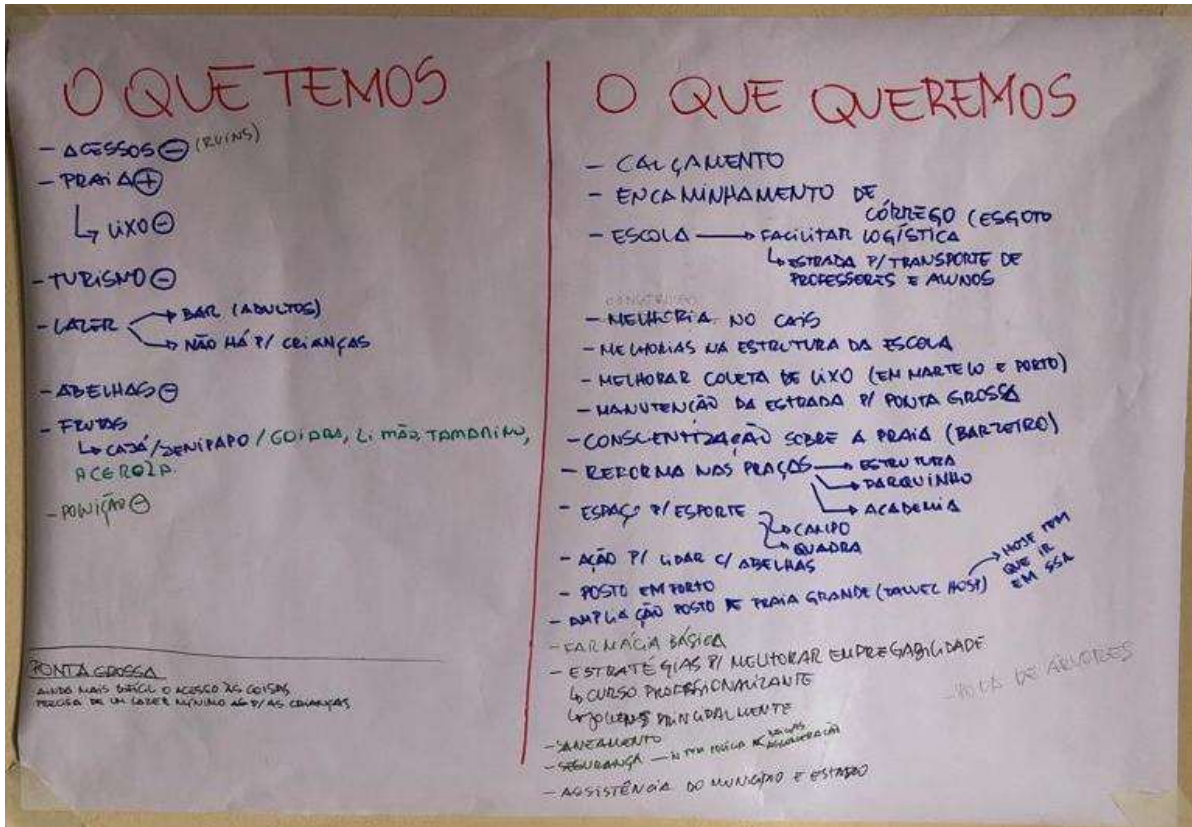 O QUE TEMOS
- ACESSOS ⊖ (RUINS)
- PRAIA ⊕
↳ LIXO ⊖
- TURISMO ⊖
- LAZER → BAR (ADULTOS)
→ NÃO HÁ P/ CRIANÇAS
- ABELHAS ⊖
- FRUTAS
↳ CAJÁ/JENIPAPO/GOIABA, LIMÃO, TAMARINO,
ACEROLA.
- POLUIÇÃO ⊖
PONTA GROSSA
AINDA MAIS DIFÍCIL O ACESSO ÀS COISAS
PRECISA DE UM LAZER MÍNIMO P/ AS CRIANÇAS
O QUE QUEREMOS
- CALÇAMENTO
- ENCAMINHAMENTO DE
CÓRREGO (ESGOTO
- ESCOLA → FACILITAR LOGÍSTICA
↳ ESTRADA P/ TRANSPORTE DE
PROFESSORES E ALUNOS
- MELHORIA NO CAIS
- MELHORIAS NA ESTRUTURA DA ESCOLA
- MELHORAR COLETA DE LIXO (EM MARTELO E PORTO)
- MANUTENÇÃO DA ESTRADA P/ PONTA GROSSA
- CONSCIENTIZAÇÃO SOBRE A PRAIA (BARZEIRO)
- REFORMA NAS PRAÇAS → ESTRUTURA
→ PARQUINHO
→ ACADEMIA
- ESPAÇO P/ ESPORTE
→ CAMPO
→ QUADRA
- AÇÃO P/ LIDAR C/ ABELHAS
- POSTO EM PORTO
- AMPLIAÇÃO POSTO DE PRAIA GRANDE (TALVEZ HOSP) → HOJE TEM
QUE IR
EM SSA
- FARMÁCIA BÁSICA
- ESTRATÉGIAS P/ MELHORAR EMPREGABILIDADE
↳ CURSO PROFISSIONALIZANTE
↳ JOVENS PRINCIPALMENTE
- PODA DE ÁRVORES
- SANEAMENTO
- SEGURANÇA — Ñ TEM POLÍCIA
- ASSISTÊNCIA DO MUNICÍPIO E ESTADO